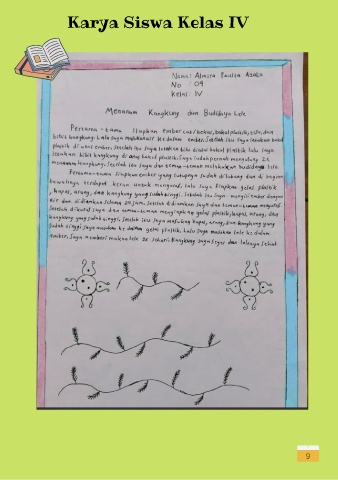 Karya Siswa Kelas IV
Nama: Almira
No : 09
Kelas: IV
Menanam Kangkung dan Budidaya Lele
Pertama-tama siapkan ember cat/bekas, bakul plastik, lele, dan
bibit kangkung. Lalu saya ke dalam ember. Setelah itu saya letakkan bakul
plastik di atas ember. Setelah itu saya letakkan bibit di atas bakul plastik lalu saya
bibit kangkung di atas bakul plastik. Saya sudah pernah mengulang 2x
menanam kangkung. Setelah itu saya dan teman-teman melakukan budidaya lele
Pertama-tama siapkan ember yang tutupnya sudah di lubang dan di bagian
bawahnya terdapat keran untuk menguras. Lalu saya siapkan gelas plastik
, kapas, arang, dan kangkung yang sudah tinggi. Setelah itu saya mengisi ember dengan
air dan di diamkan selama jam. Setelah didiamkan saya dan teman-teman menguras.
Setelah dikuras saya dan teman-teman menyiapkan gelas plastik, kapas, arang, dan
kangkung yang sudah tinggi. Setelah itu saya masukan kapas, arang, dan kangkung yang
sudah tinggi saya masukan ke dalam gelas plastik. Lalu saya masukan lele ke dalam
ember. Saya memberi makan lele 2x sehari. Kangkung saya segar dan lelenya sehat
9